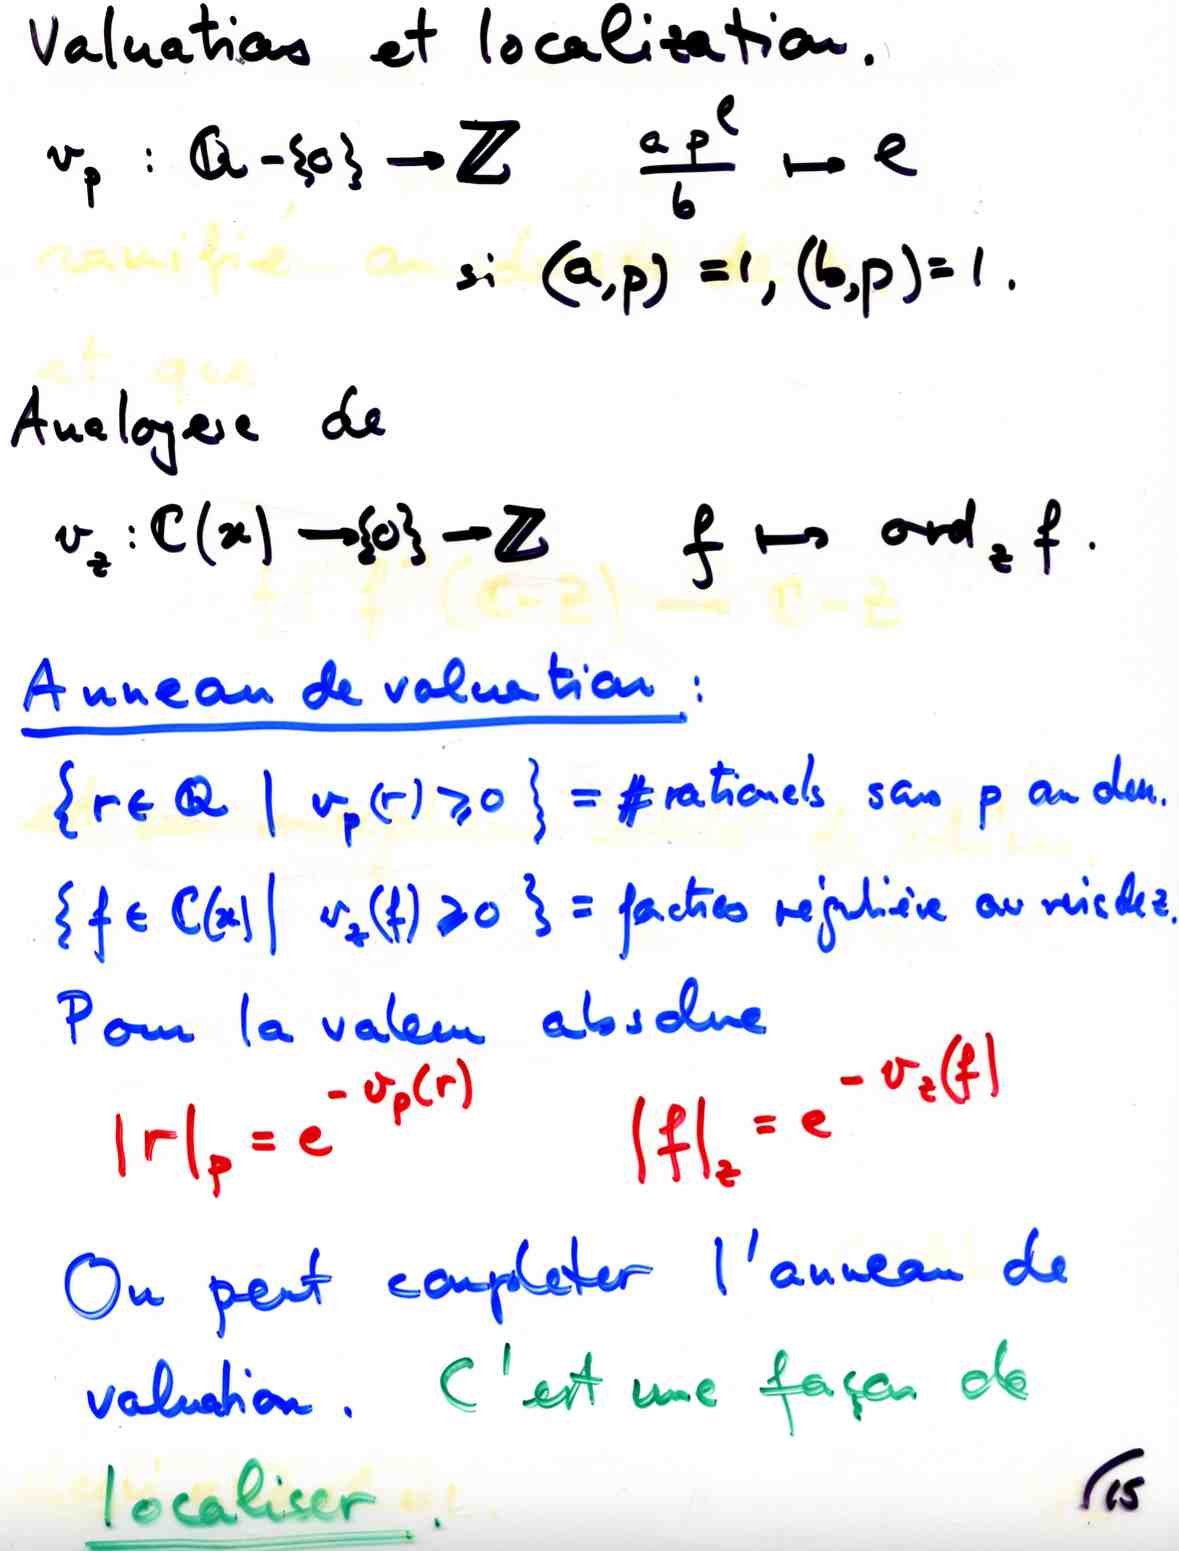 Valuations et localization.
v_p : ℚ - {0} → ℤ   a p^e / b ↦ e
si (a,p) = 1, (b,p) = 1.
Analogue de
v_z : ℂ(x) → {0} → ℤ   f ↦ ord_z f.
Anneau de valuation :
{r ∈ ℚ | v_p(r) ⩾ 0} = rationels sans p au den.
{f ∈ ℂ(x) | v_z(f) ⩾ 0} = régulière au de z.
Pour la valeur absolue
|r|_p = e^{-v_p(r)}   |f|_z = e^{-v_z(f)}
On peut completer l'anneau de
valuation. C'est une façon de
localiser.
15